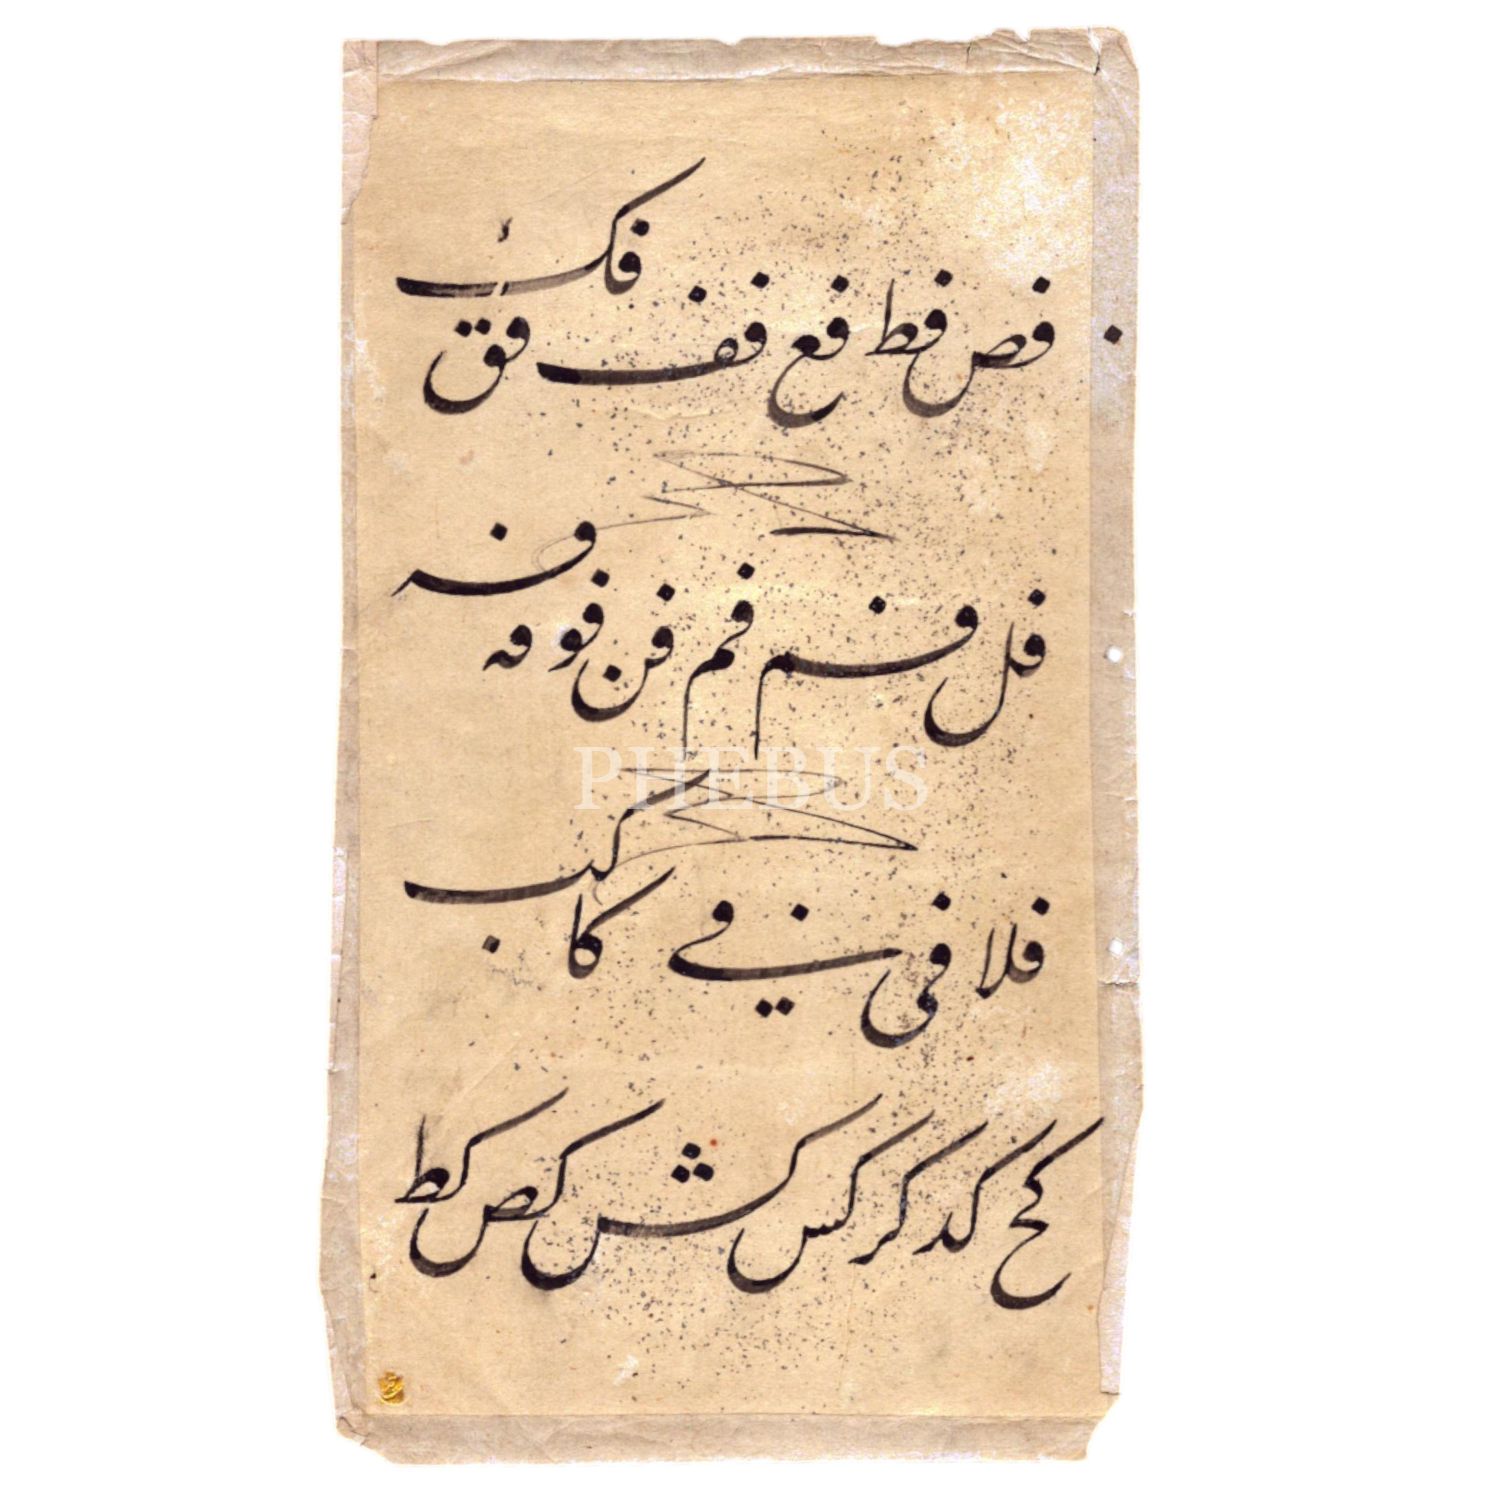 فص فط فع فف فق فک
فل فم فم فن فو فه فه
فلا فى فے کا کب
کح کد کر کس کش کص کط
PHEBUS